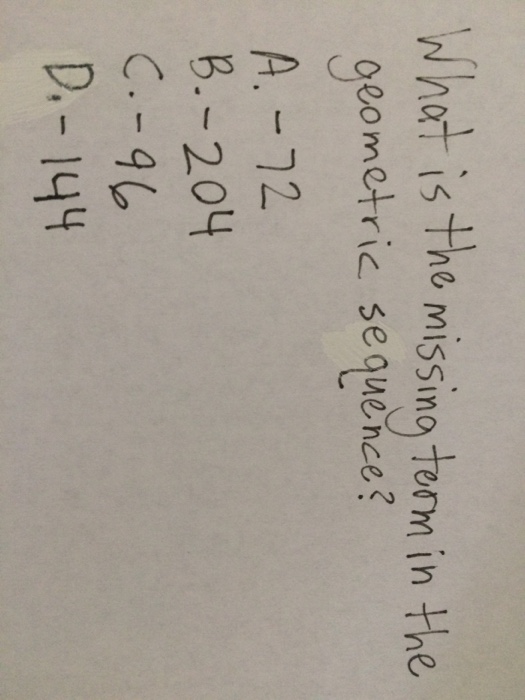 What is the missing term in the
geometric sequence?
A. -72
B. -204
C. -96
D. -144